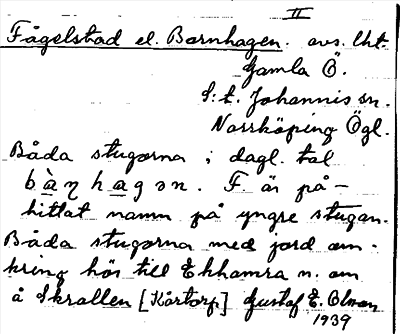 II
Fågelstad el. Barnhagen. avs. lht.
Gamla Ö.
S:t. Johannis sn.
Norrköping Ögl.
Båda stugorna i dagl. tal
bàŋhagən. F. är på-
hittat namn på yngre stugan.
Båda stugorna med jord om-
kring hör till Ekhamra n. om
å Skrallen [Kårtorp] Gustaf E. Olsson
1939